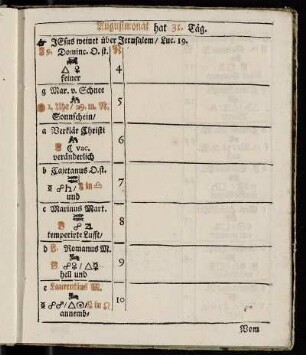 Augustmonat hat 31. Täg.
JEsus weinet über Jerusalem / Luc. 19.
9. Dominc. O. st.
△ ♀
4
feiner
g Mar. v. Schnee
1. Uhr / 29. m. N.
5
Sonnschein /
a Verklär Christi
☾ vac.
6
veränderlich
b Cajetanus O.st.
☍ ♄ / in ♎
7
und
c Marinus Mart.
☍ ♃
8
temperirte Lufft /
d Romanus M.
☍ ♀ / △ ☿
9
hell und
e Laurentius M.
in ♌
10
annemb⸗
Vom